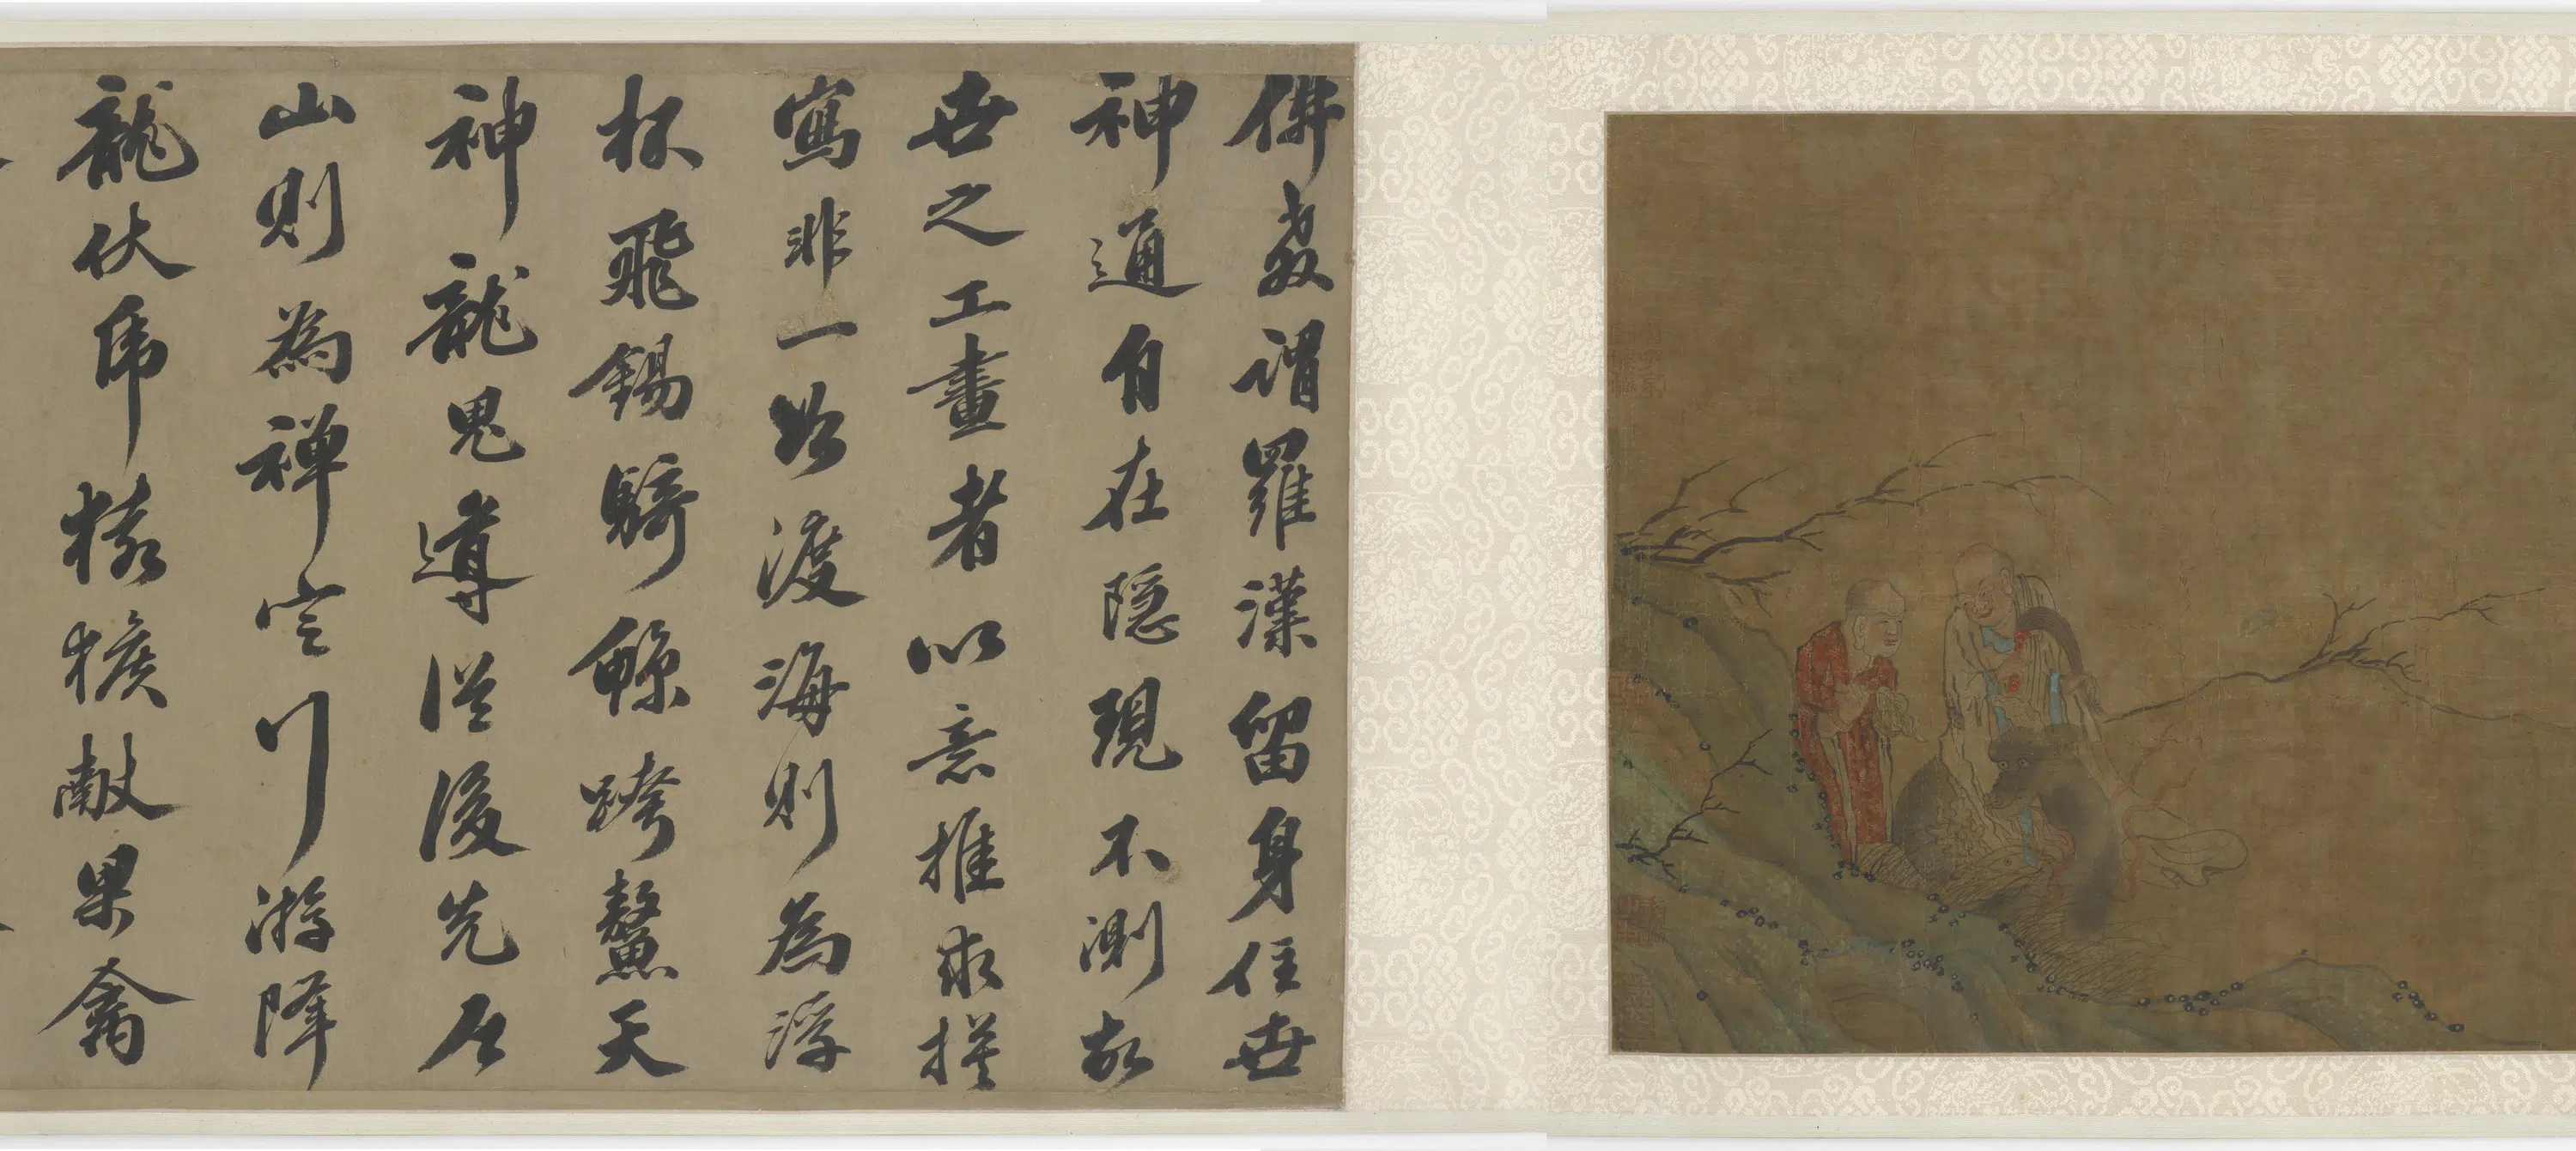 佛教謂羅漢留身住世
神通自在隱現不測故
世之工畫者以意推求摸
寫非一如渡海則為浮
杯飛錫騎鯨跨鰲天
神龍鬼導從後先居
山則為禪定川游降
龍伏虎猿猴獻果禽